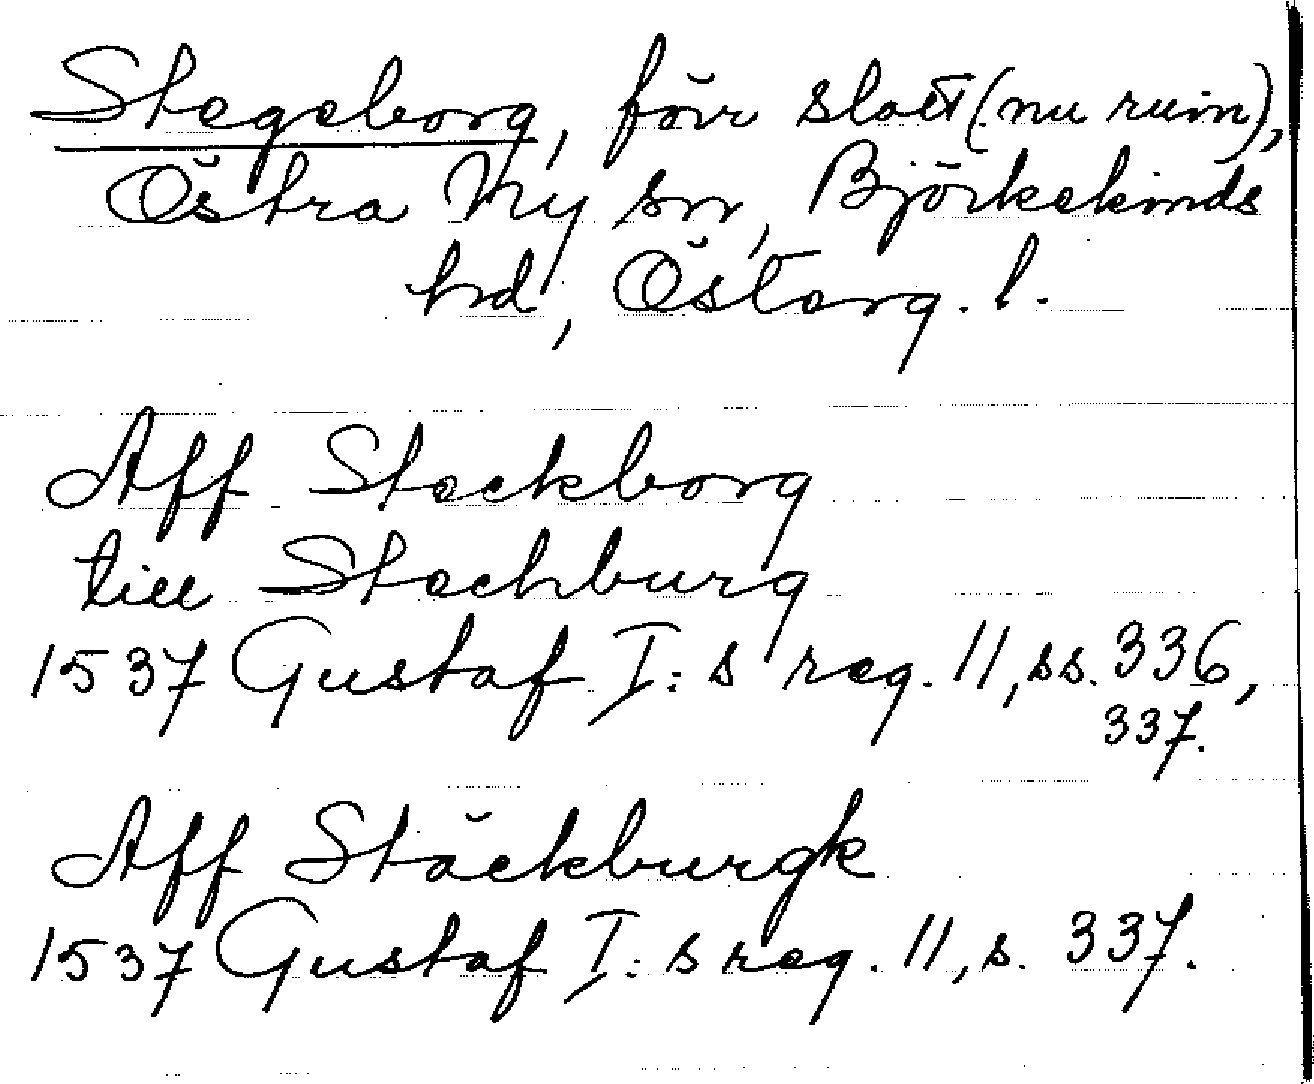 Stegeborg, förr slott (nu ruin),
Östra Ny sn, Björkekinds
hd, Österg. l.
Aff Steckborg
till Stechburg
1537 Gustaf I:s reg. 11, ss. 336,
337.
Aff Stäckburgk
1537 Gustaf I:s reg. 11, s. 337.